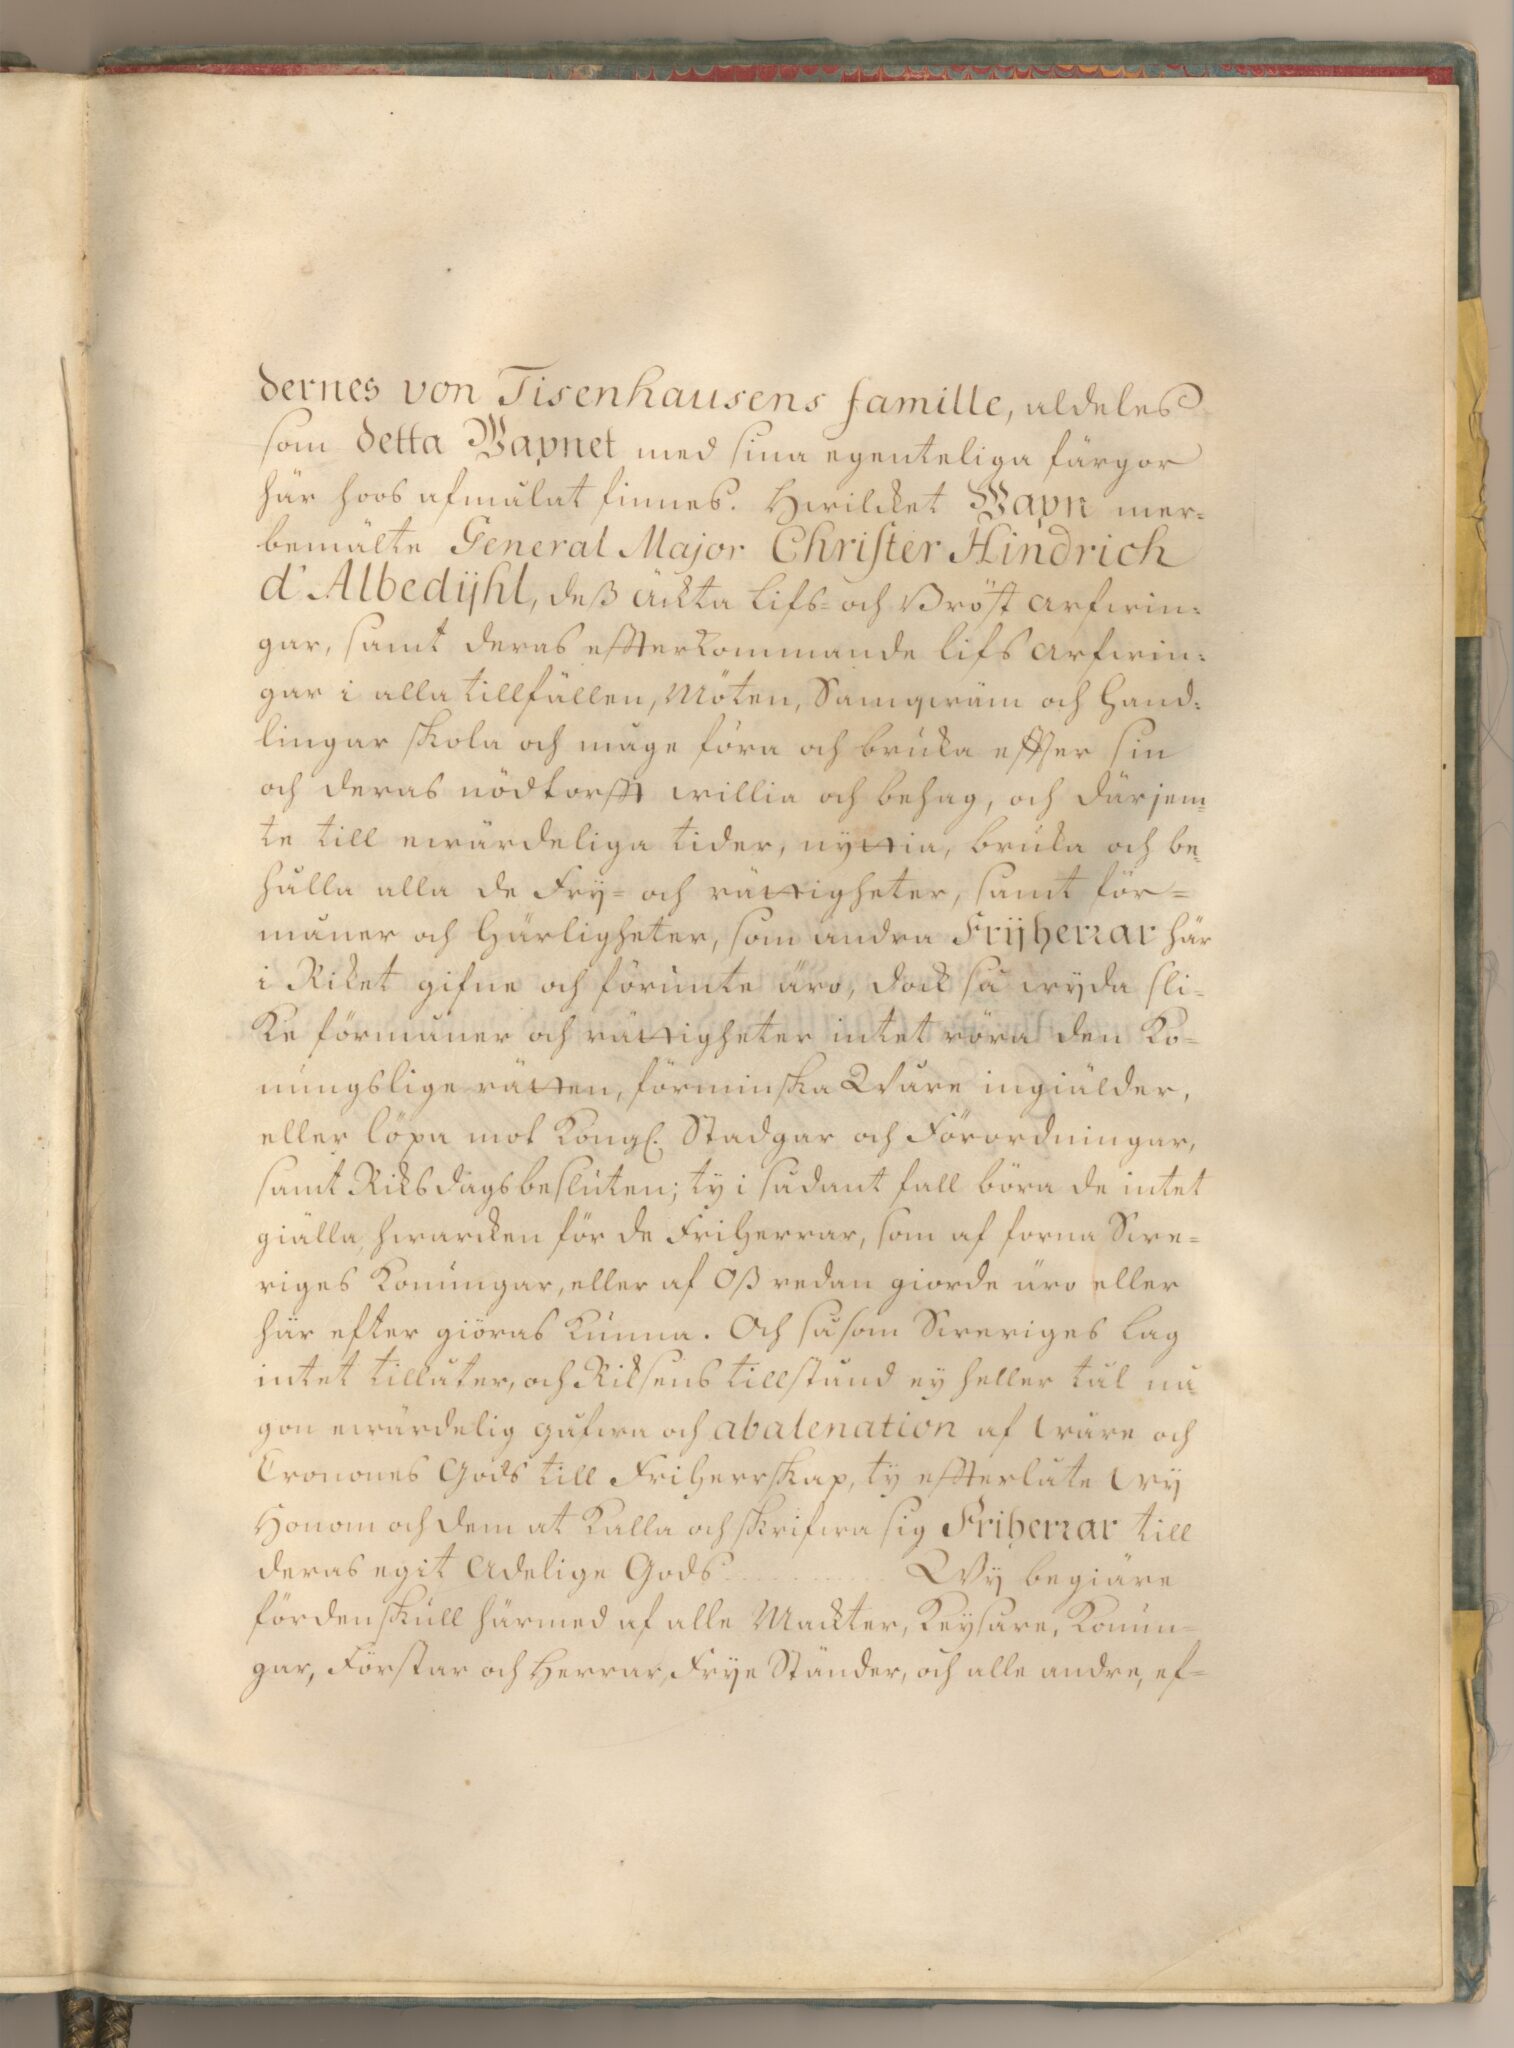 dernes von Tisenhausens famille, aldeles
som detta Wapnet med sina egenteliga färgor
här hoos afmålat finnes. Hwilcket Wapn mer-
bemälte General Major Christer Hindrich
d'Albedÿhl, deß ächta Lifs- och Bröst Arfwin-
gar, samt deras effterkommande Lifs Arfwin-
gar i alla tillfällen, Möten, Samqwäm och Hand-
lingar skola och måge föra och bruka effter sin
och deras nödtorfft willia och behag, och därjem-
te till ewärdeliga tider, nyttia, bruka och be-
hålla alla de Fry- och rättigheter, samt för-
måner och Härligheter, som andra Frijherrar här
i Riket gifne och förunte äro, dock så wyda sli-
ke förmåner och rättigheter intet röra den Ko-
nungslige rätten, förminska Wåre ingiälder,
eller löpa mot Kongl. Stadgar och Förordningar,
samt Riksdagsbesluten; ty i sådant fall böra de intet
giälla, hwarcken för de Friherrar, som af forna Swe-
riges Konungar, eller af Oß redan giorde äro eller
här efter giöras kunna. Och såsom Sweriges Lag
intet tillåter, och Riksens tillstånd ey heller tål nå
gon ewärdelig gåfwa och abalenation af Wåre och
Cronones Gods till Friherrskap, ty effterlåte Wÿ
Honom och dem at kalla och skrifwa sig Friherrar till
deras egit Adelige Gods .......... Wÿ begiäre
fördenskull härmed af alle Mackter, Keysare, Konun-
gar, Förstar och Herrar, Frÿe Ständer, och alle andre, ef-